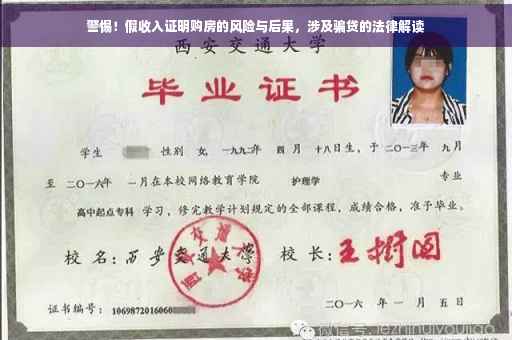 警惕！假收入证明购房的风险与后果，涉及骗贷的法律解读
西安交通大学
毕业证书
学生 性别 女，一九九二年 四月 十八日生，于二〇一三年 九月
至 二〇一六年 一月在本校网络教育学院 护理学 专业
高中起点专科 学习，修完教学计划规定的全部课程，成绩合格，准予毕业。
校名：西安交通大学 校长：王树国
证书编号：1069872016060
二〇一六 年 一 月 五 日
微信号: jezhinuiyoujiao